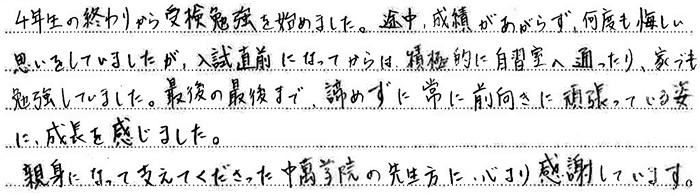 4年生の終わりから受検勉強を始めました。途中、成績があがらず、何度も悔しい
思いをしていましたが、入試直前になってからは、積極的に自習室へ通ったり、家でも
勉強していました。最後の最後まで、諦めずに常に前向きに頑張っている姿
に、成長を感じました。
親身になって支えてくださった中萬学院の先生方に、心より感謝しています。